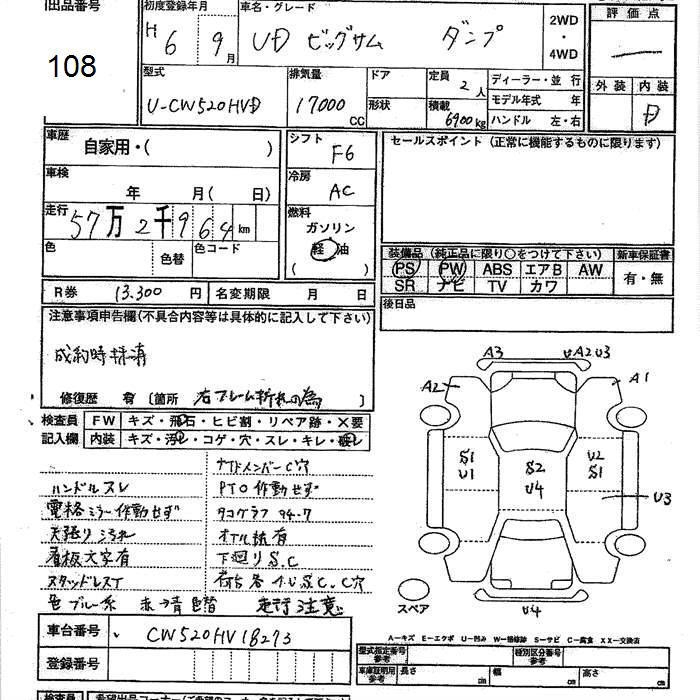 出品番号
108
初度登録年月
H 6 9月
車名・グレード
UD ビッグサム ダンプ
2WD
・
4WD
評価点
外装 内装
D
型式
U-CW520HVD
排気量
17000 CC
ドア
形状
定員 2人
積載 6900kg
ディーラー・並行
モデル年式 年
ハンドル 左・右
車歴
自家用・( )
シフト
F6
セールスポイント (正常に機能するものに限ります)
車検
年 月( 日)
冷房
AC
走行
57万2千964km
燃料
ガソリン
軽油
( )
色
色替
色コード
装備品 (純正品に限り○をつけて下さい)
新車保証書
PS PW ABS エアB AW
有・無
SR ナビ TV カワ
R券 13,300円
名変期限 月 日
後日品
注意事項申告欄(不具合内容等は具体的に記入して下さい)
成約時抹消
修復歴 有 〔箇所 右フレーム折れの為 〕
検査員
記入欄
FW キズ・飛石・ヒビ割・リペア跡・X要
内装 キズ・汚レ・コゲ・穴・スレ・キレ・破レ
サイドメンバーC穴
ハンドルスレ
PTO作動せず
電格ミラー作動せず
タコグラフ 94-7
天張り汚れ
オイル漏有
看板文字有
下廻りS.C
スタッドレスT
荷台各A.U.S.C.C穴
色ブルー系 赤→青色替 走行注意
A3
A2 U3
A2
A1
S1
U1
S2
U4
U2
S1
U3
U4
スペア
車台番号
CW520HV18273
登録番号
A－キズ E－エクボ U－凹み W－補修跡 S－サビ C－腐食 XX－交換済
型式指定番号
参考
種別区分番号
参考
車庫証明用
参考
長さ
幅
高さ
検査員
希望出品コーナー